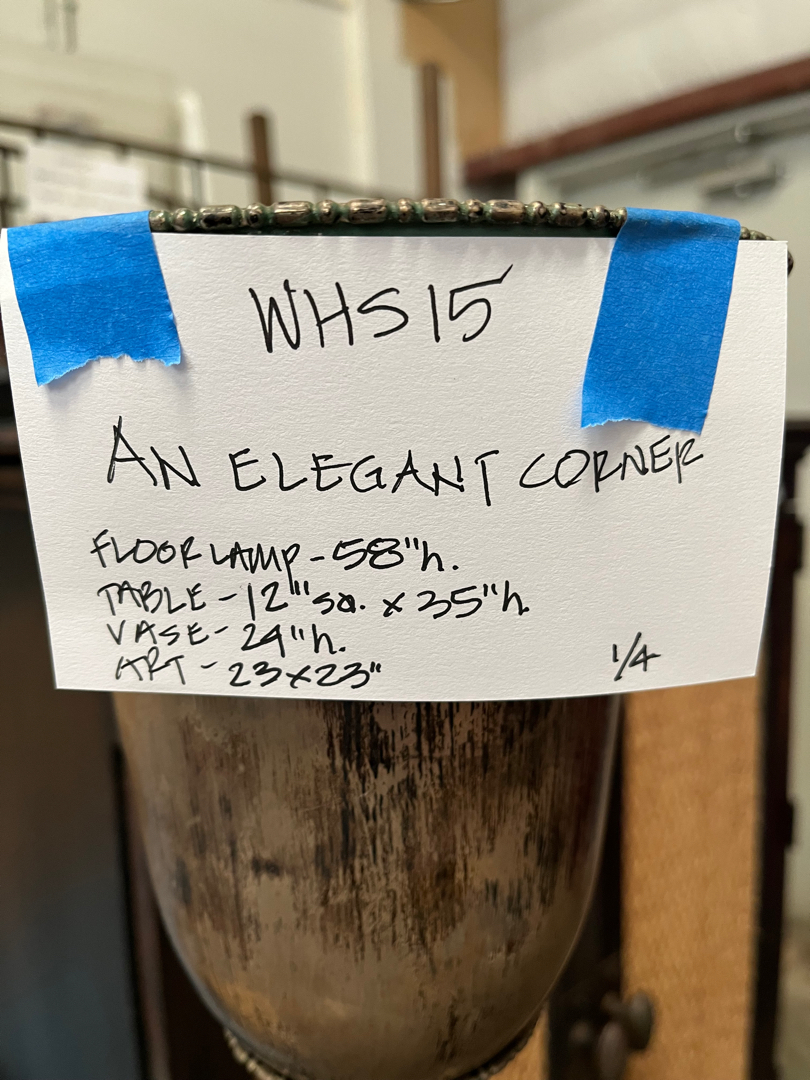 WHS15
AN ELEGANT CORNER
FLOOR LAMP - 58"h.
TABLE - 12" sq. x 35"h.
VASE - 24"h.
ART - 23x23"
1/4